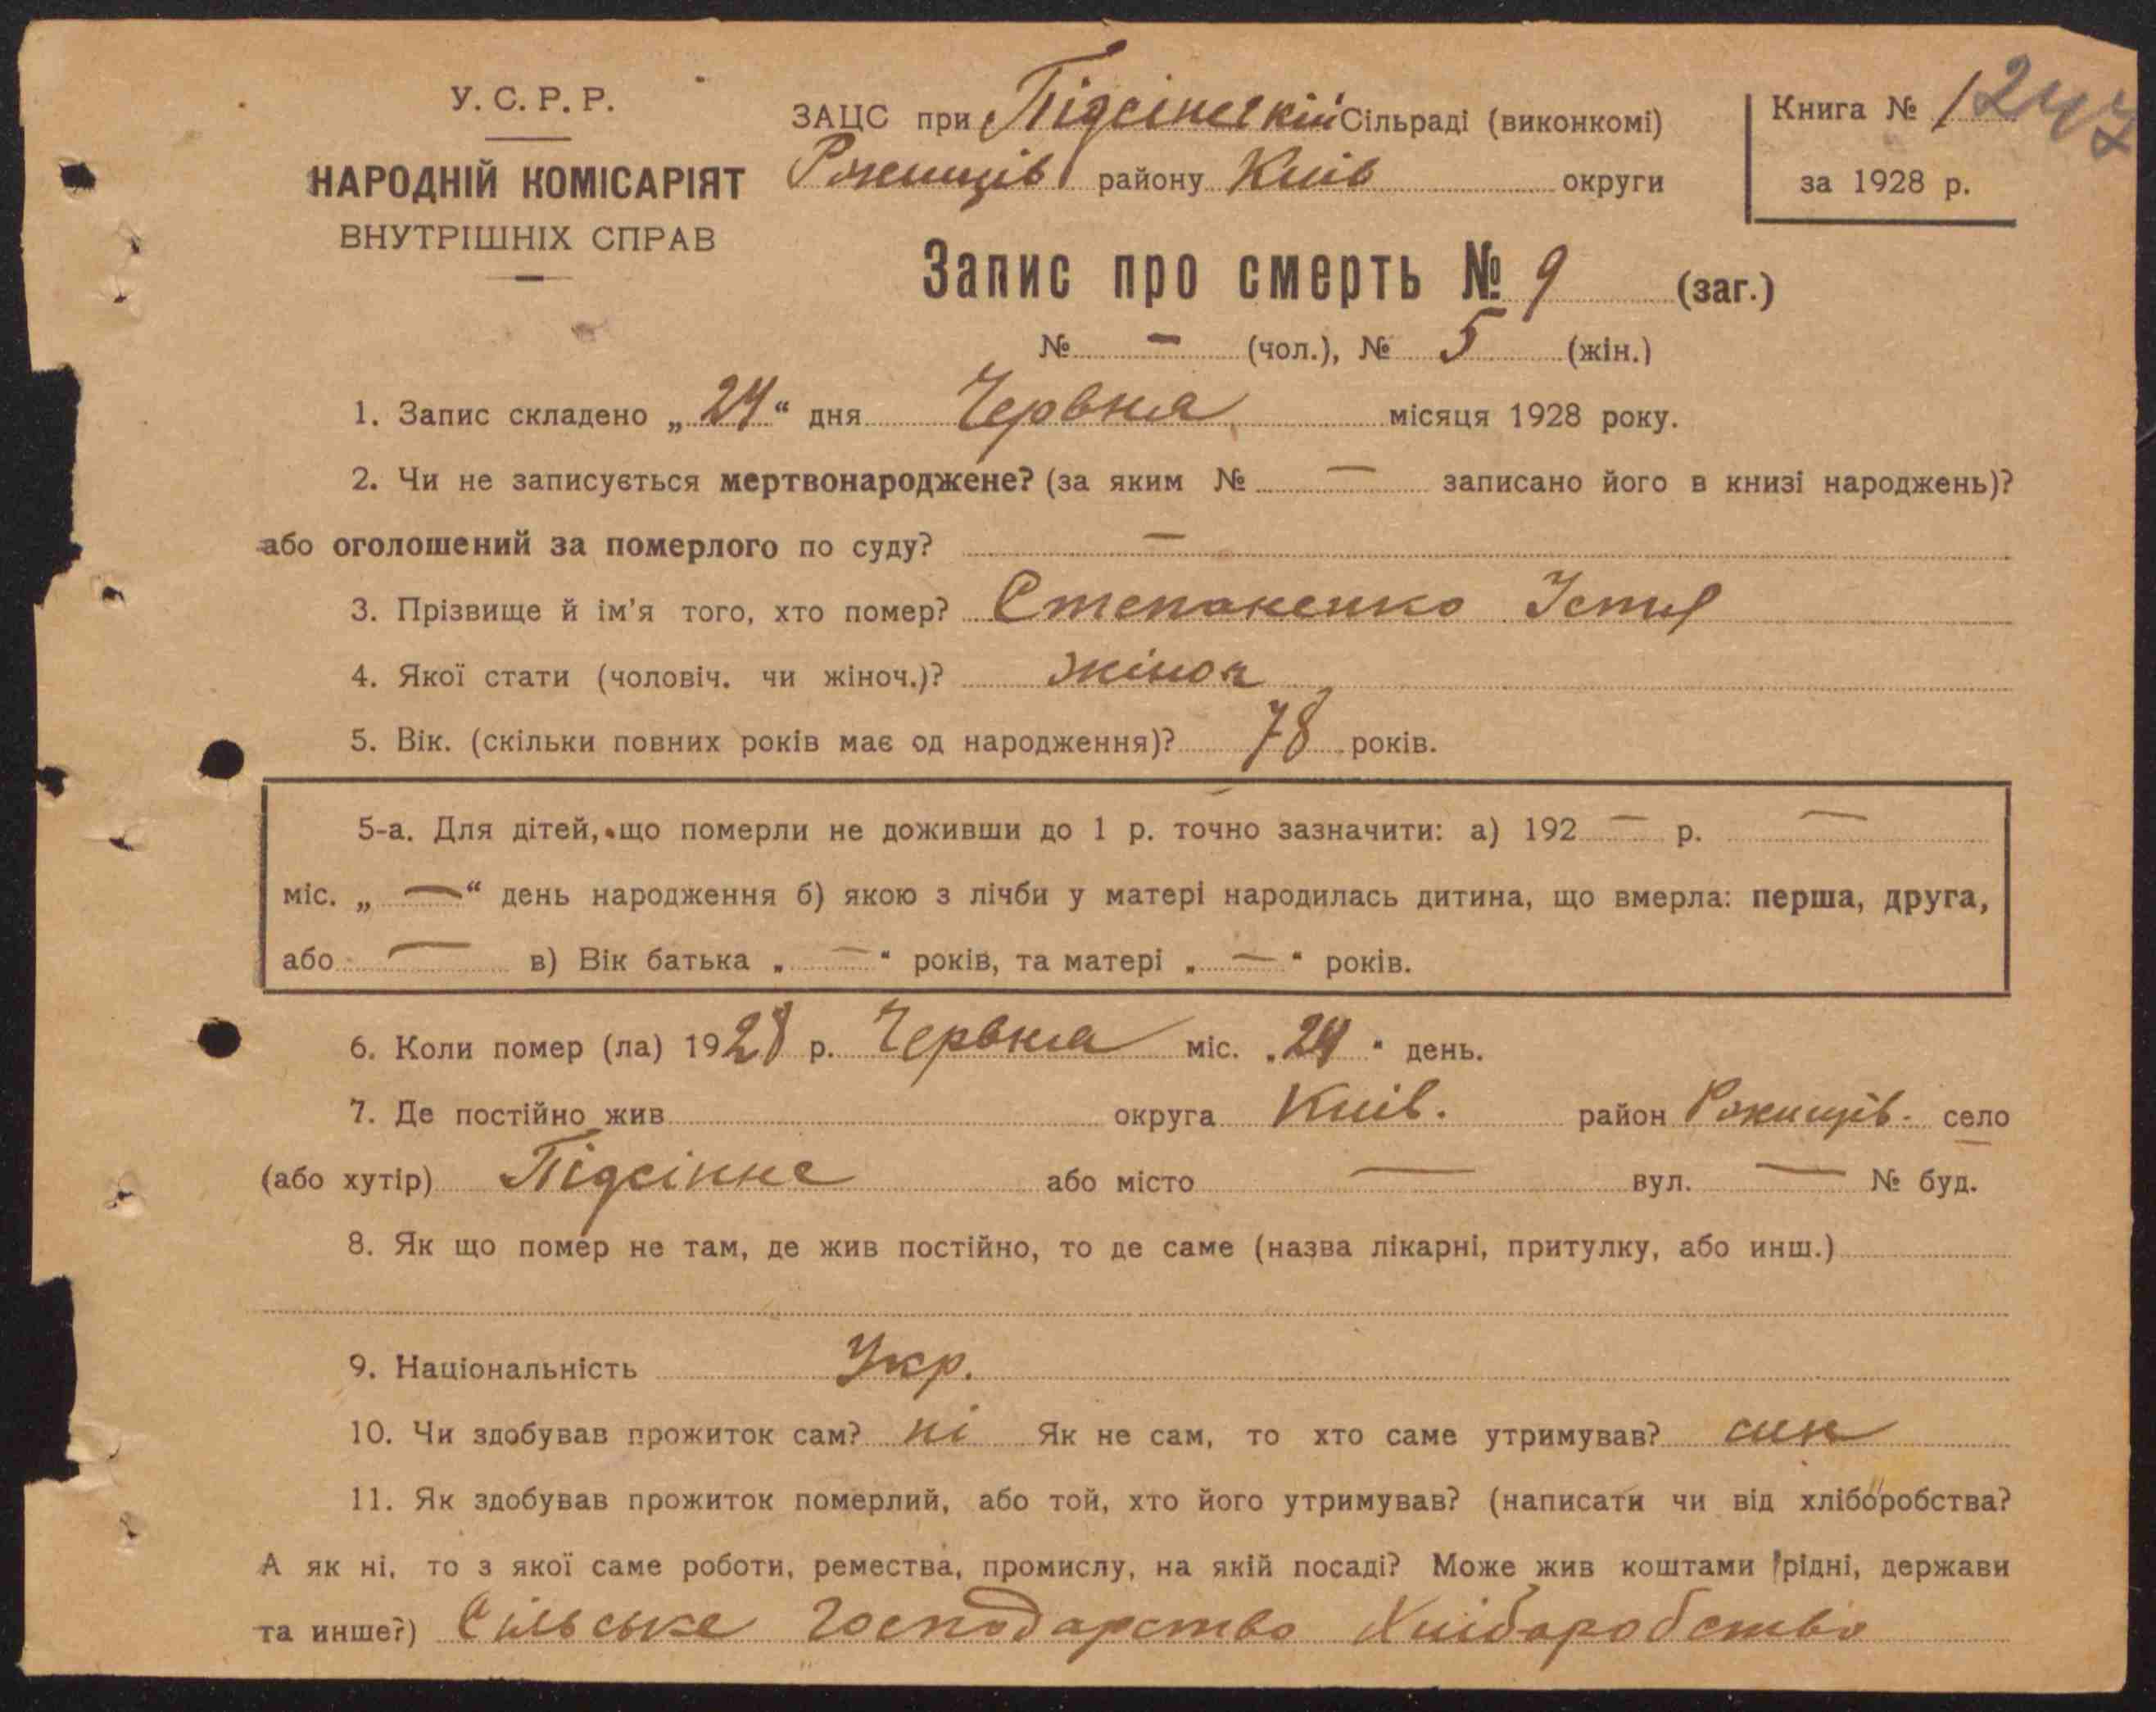 У. С. Р. Р.
НАРОДНІЙ КОМІСАРІЯТ
ВНУТРІШНІХ СПРАВ
ЗАЦС при Підсінській Сільраді (виконкомі)
району Київ округи
Книга № 1 247
за 1928 р.
Запис про смерть № 9 (заг.)
№ — (чол.), № 5 (жін.)
1. Запис складено „24“ дня Червня місяця 1928 року.
2. Чи не записується мертвонароджене? (за яким № — записано його в книзі народжень)?
або оголошений за померлого по суду? —
3. Прізвище й ім'я того, хто помер? Степаненко Устя
4. Якої стати (чоловіч. чи жіноч.)? жіноч
5. Вік. (скільки повних років має од народження)? 78 років.
5-а. Для дітей, що померли не доживши до 1 р. точно зазначити: а) 192 — р. —
міс. „ — “ день народження б) якою з лічби у матері народилась дитина, що вмерла: перша, друга,
або — в) Вік батька „ — “ років, та матері „ — “ років.
6. Коли помер (ла) 1928 р. Червня міс. „24“ день.
7. Де постійно жив округа Київ. район село
(або хутір) Підсінне або місто — вул. — № буд.
8. Як що помер не там, де жив постійно, то де саме (назва лікарні, притулку, або инш.)
9. Національність Укр.
10. Чи здобував прожиток сам? ні Як не сам, то хто саме утримував? син
11. Як здобував прожиток померлий, або той, хто його утримував? (написати чи від хліборобства?
А як ні, то з якої саме роботи, ремества, промислу, на якій посаді? Може жив коштами рідні, держави
та инше?) Сільське господарство Хліборобство